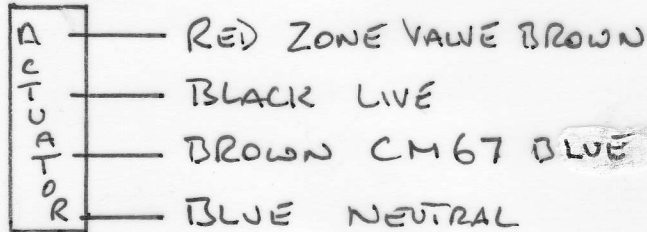 ACTUATOR
RED ZONE VALVE BROWN
BLACK LIVE
BROWN CM67 BLUE
BLUE NEUTRAL